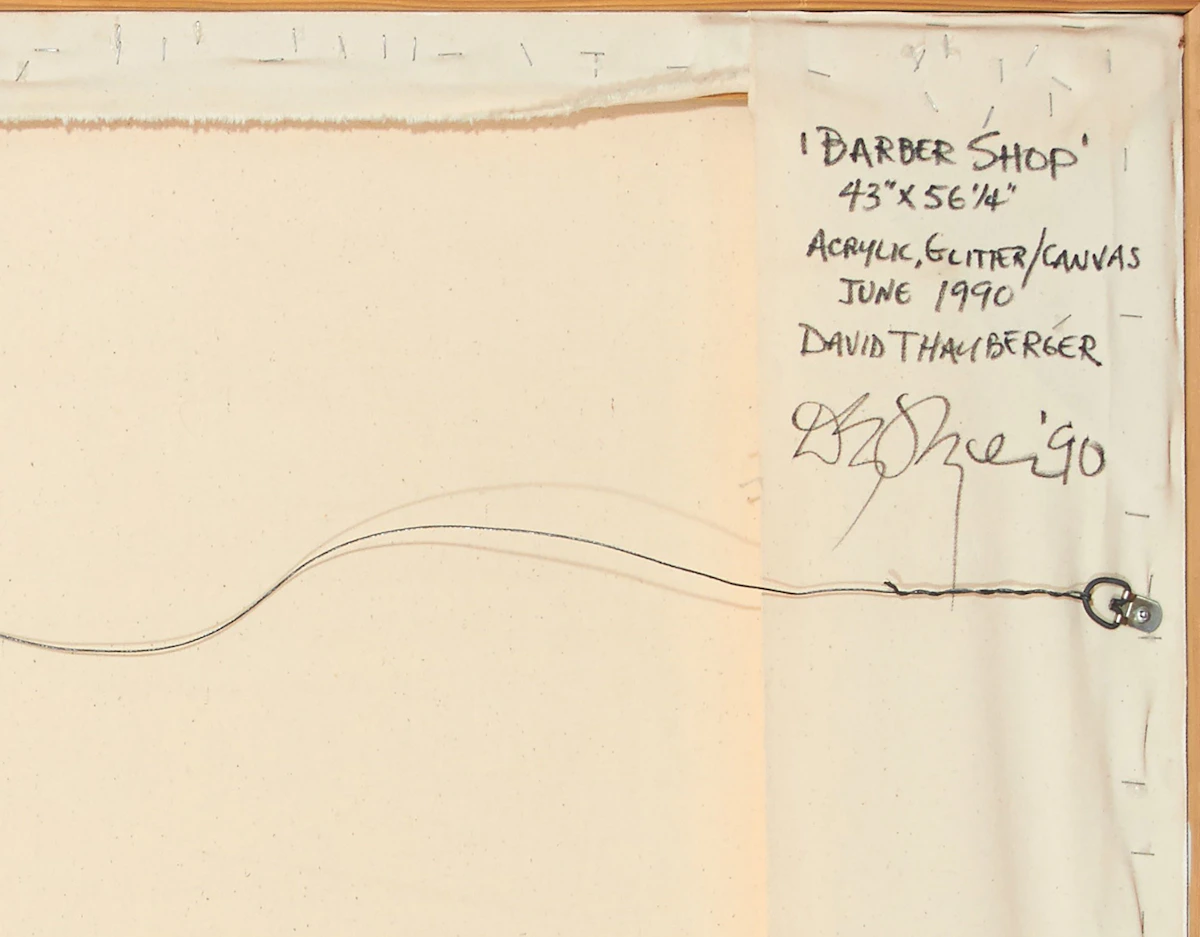 'BARBER SHOP'
43" X 56 1/4"
ACRYLIC, GLITTER/CANVAS
JUNE 1990
DAVID THAUBERGER
'90